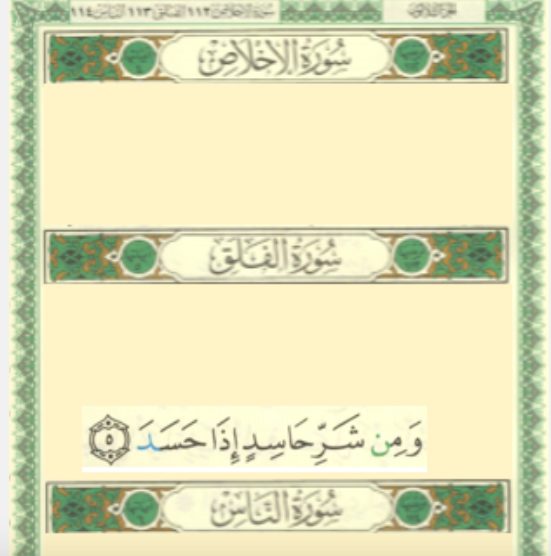 سورة الإخلاص ١١٢ الفلق ١١٣ الناس ١١٤
الجزء الثلاثون
سُورَةُ الإِخْلَاصِ
سُورَةُ الفَلَقِ
وَمِن شَرِّ حَاسِدٍ إِذَا حَسَدَ ٥
سُورَةُ النَّاسِ